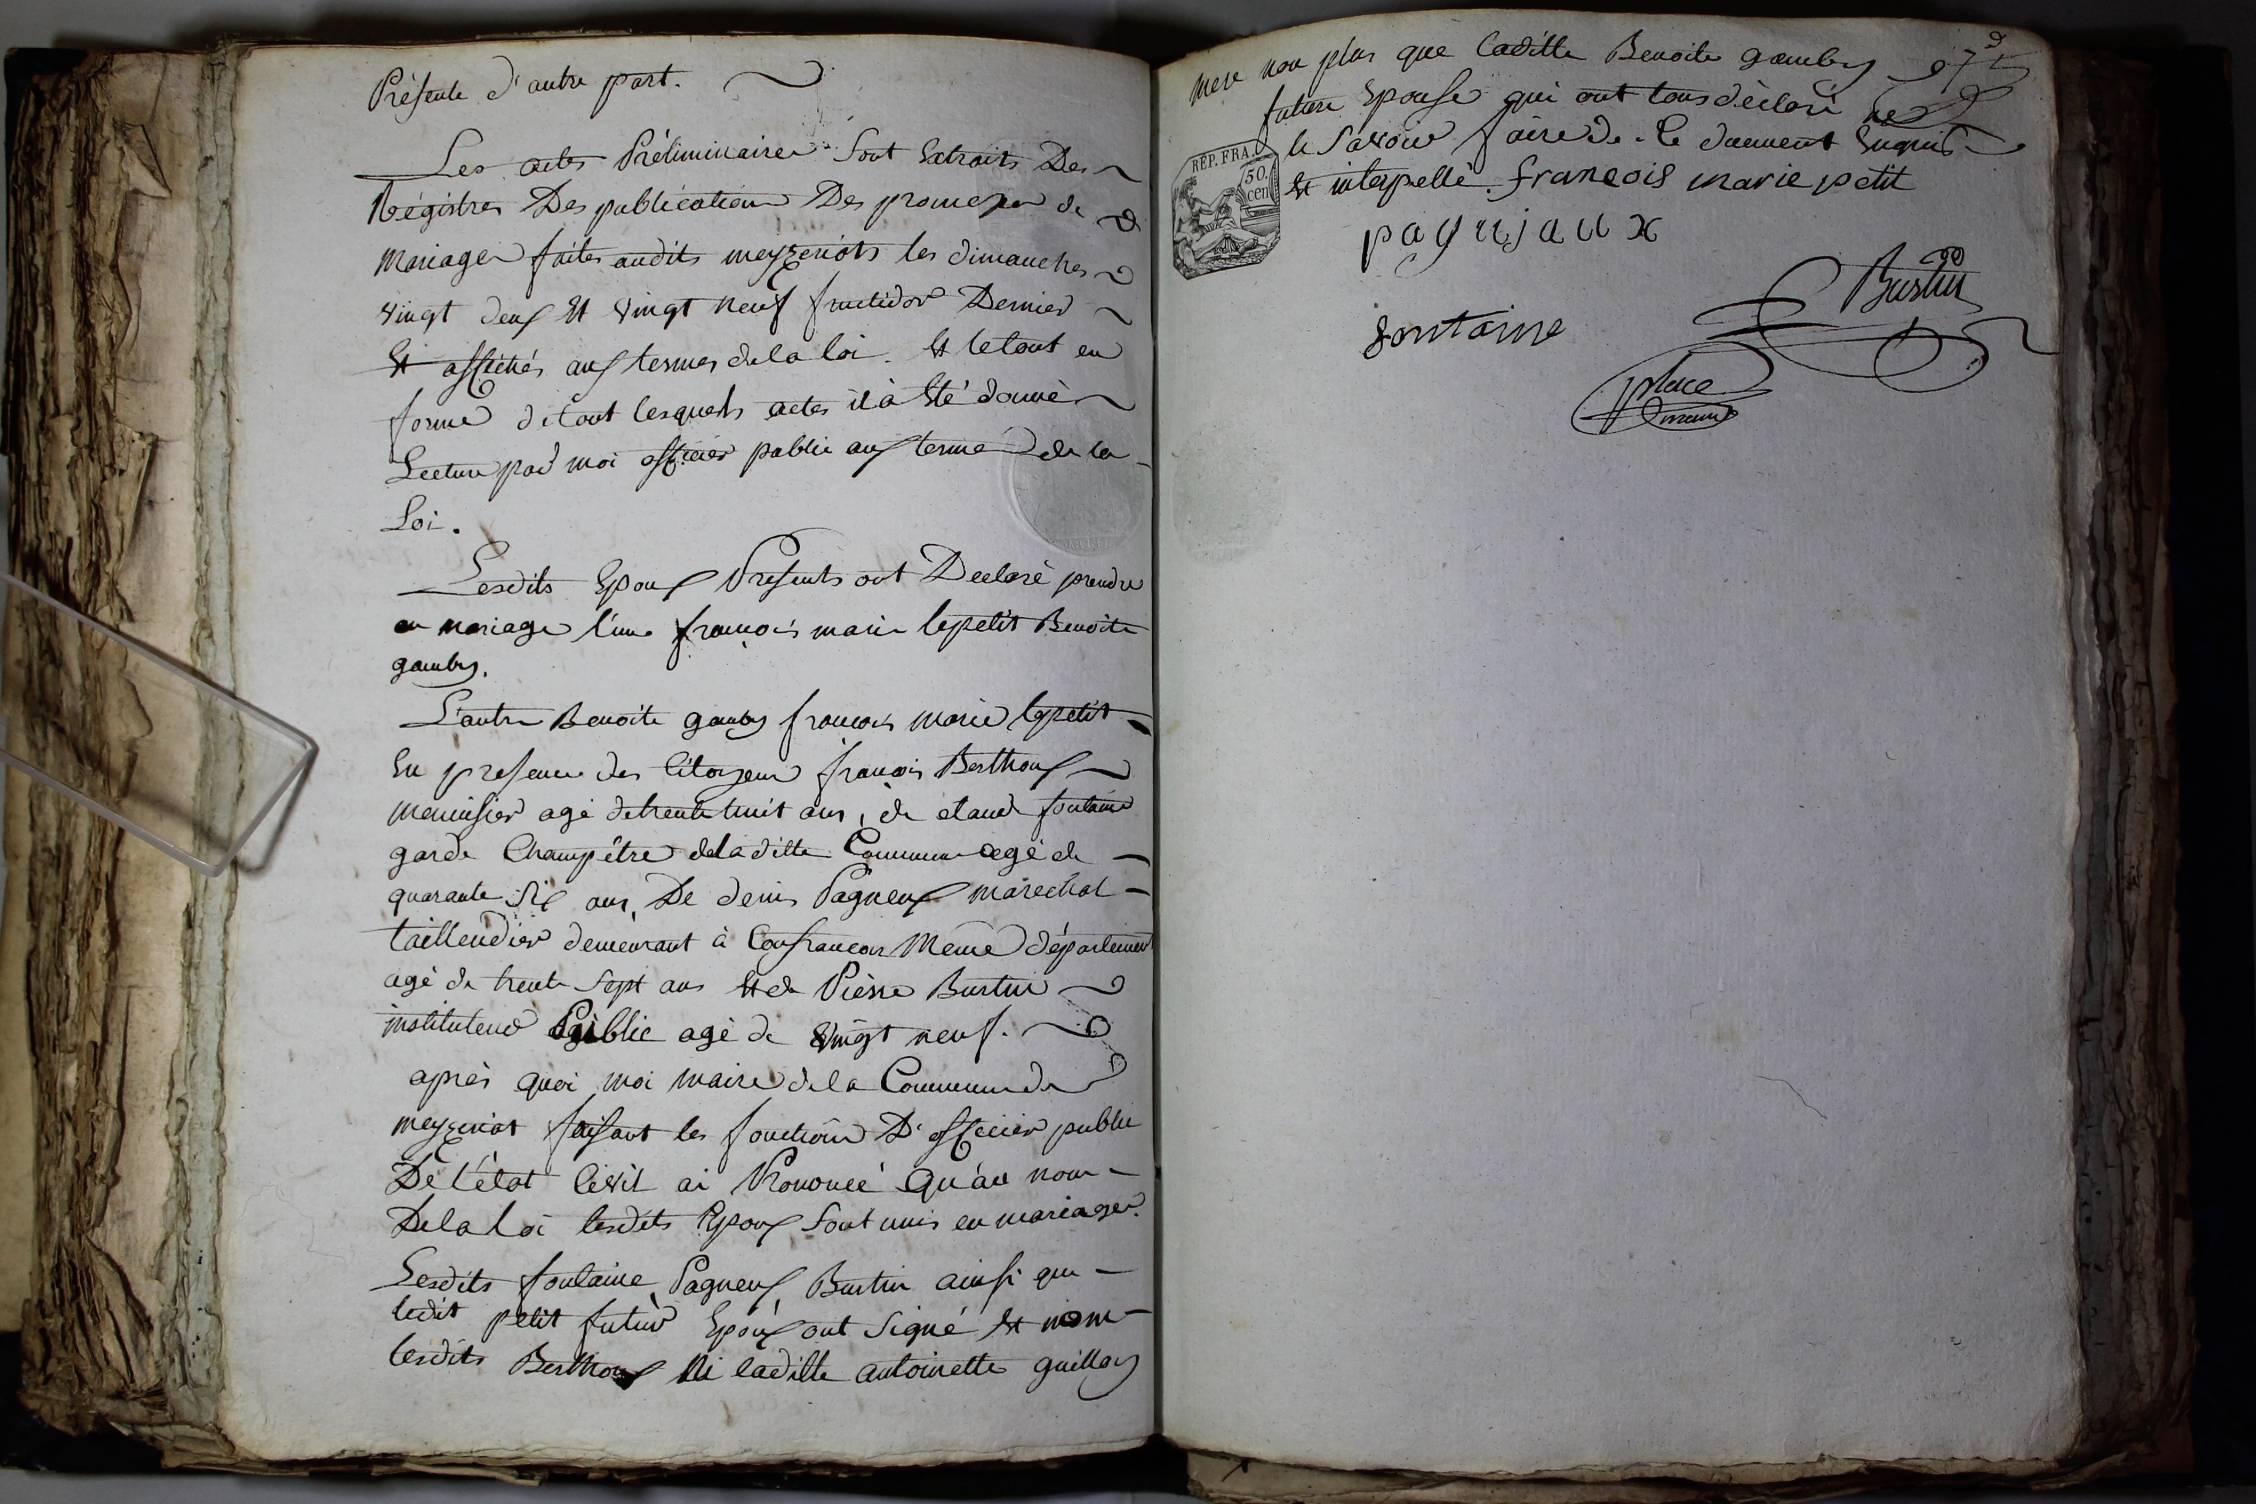 Présente d'autre part.
Les actes Préliminaires Sont Extraits Des
Régistres Des publications Des promesses de
mariages faites audits meyzeriats les dimanches
vingt deux Et vingt neuf fructidor Dernier
Et affichés aux termes de la loi. Et le tout en
forme de tout lesquels actes il à Eté donné
Lecture par moi officier public aux termes de la
Loi.
Lesdits Epoux Presents ont Declaré prendre
en mariage l'une françois marie lepetit Benoite
gamby.
L'autre Benoite gamby françois marie lepetit
En presence des Citoyens françois Berthoux
menuisier agé de trente huit ans, de claude fontaine
garde Champêtre de la ditte Commune agé de
quarante Six ans, De denis Pagneux marechal
taillendier demeurant à Confrancon Meme département
agé de trente Sept ans Et de Pièrre Burtin
instituteur Public agé de vingt neuf.
après quoi moi maire de la Commune de
meyzeriat faisant les fonctions D'officier public
De l'état Civil ai Prononcé Qu'au nom
De la Loi lesdits Epoux Sont unis en mariage.
Lesdits fontaine, Pagneux, Burtin ainsi que
ledit petit futur Epoux ont Signé Et non
lesdits Berthoux Ni laditte antoinette guillon
mere non plus que laditte Benoite gamby
future Epouse qui ont tous déclaré ne
le Savoir faire de ce duement Enquis
Et interpellé. françois marie petit
RÉP. FRA.
50.
cen
pagnjaux
Burtin
fontaine
place
maire